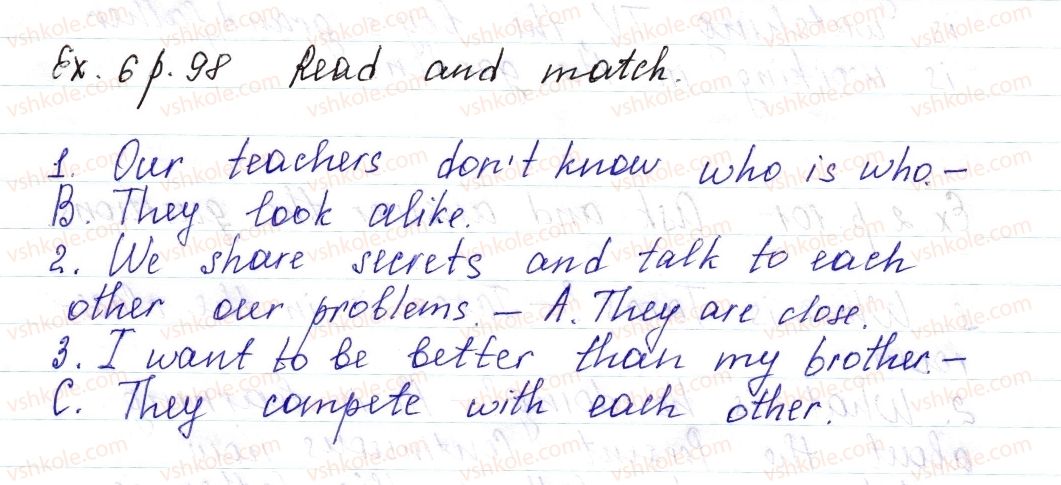 Ex. 6 p. 98 Read and match.
1. Our teachers don't know who is who. –
B. They look alike.
2. We share secrets and talk to each
other our problems. – A. They are close.
3. I want to be better than my brother. –
C. They compete with each other.